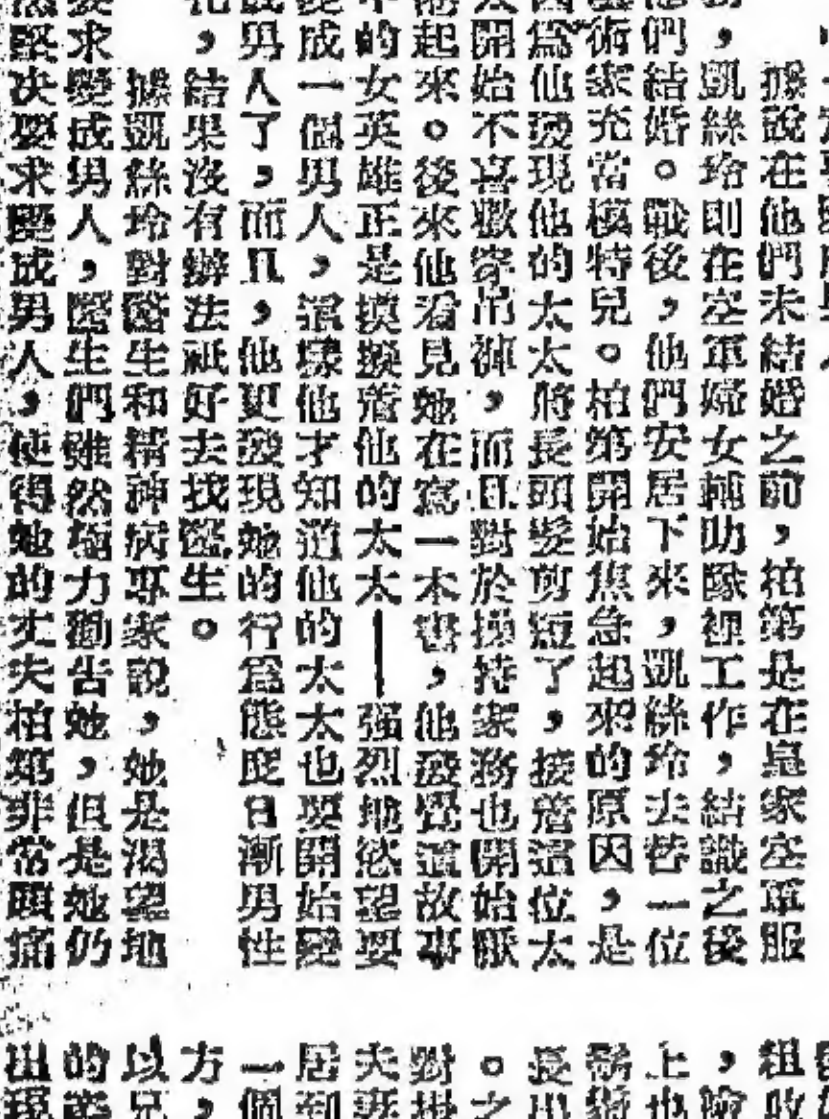 據說在他們未結婚之前，柏第是在皇家空軍服
，凱絲玲則在空軍婦女輔助隊裡工作，結識之後
他們結婚。戰後，他們安居下來，凱絲玲去替一位
藝術家充當模特兒。柏第開始焦急起來的原因，是
因為他發現他的太太將長頭髮剪短了，接着這位太
太開始不喜歡穿吊褲，而且對於操持家務也開始厭
起來。後來他看見她在寫一本書，他發覺這故事
的女英雄正是摸擬着他的太太——强烈地慾望要
變成一個男人，這樣他才知道他的太太也要開始變
成男人了，而且，他更發現她的行為態度日漸男性
化，結果沒有辦法祗好去找醫生。
據凱絲玲對醫生和精神病專家說，她是渴望地
要求變成男人，醫生們雖然極力勸告她，但是她仍
然堅决要求變成男人，使得她的丈夫柏第非常頭痛
租
，
上
長
。之
對
夫妻
居到
一個
方，
以兄
的
出現